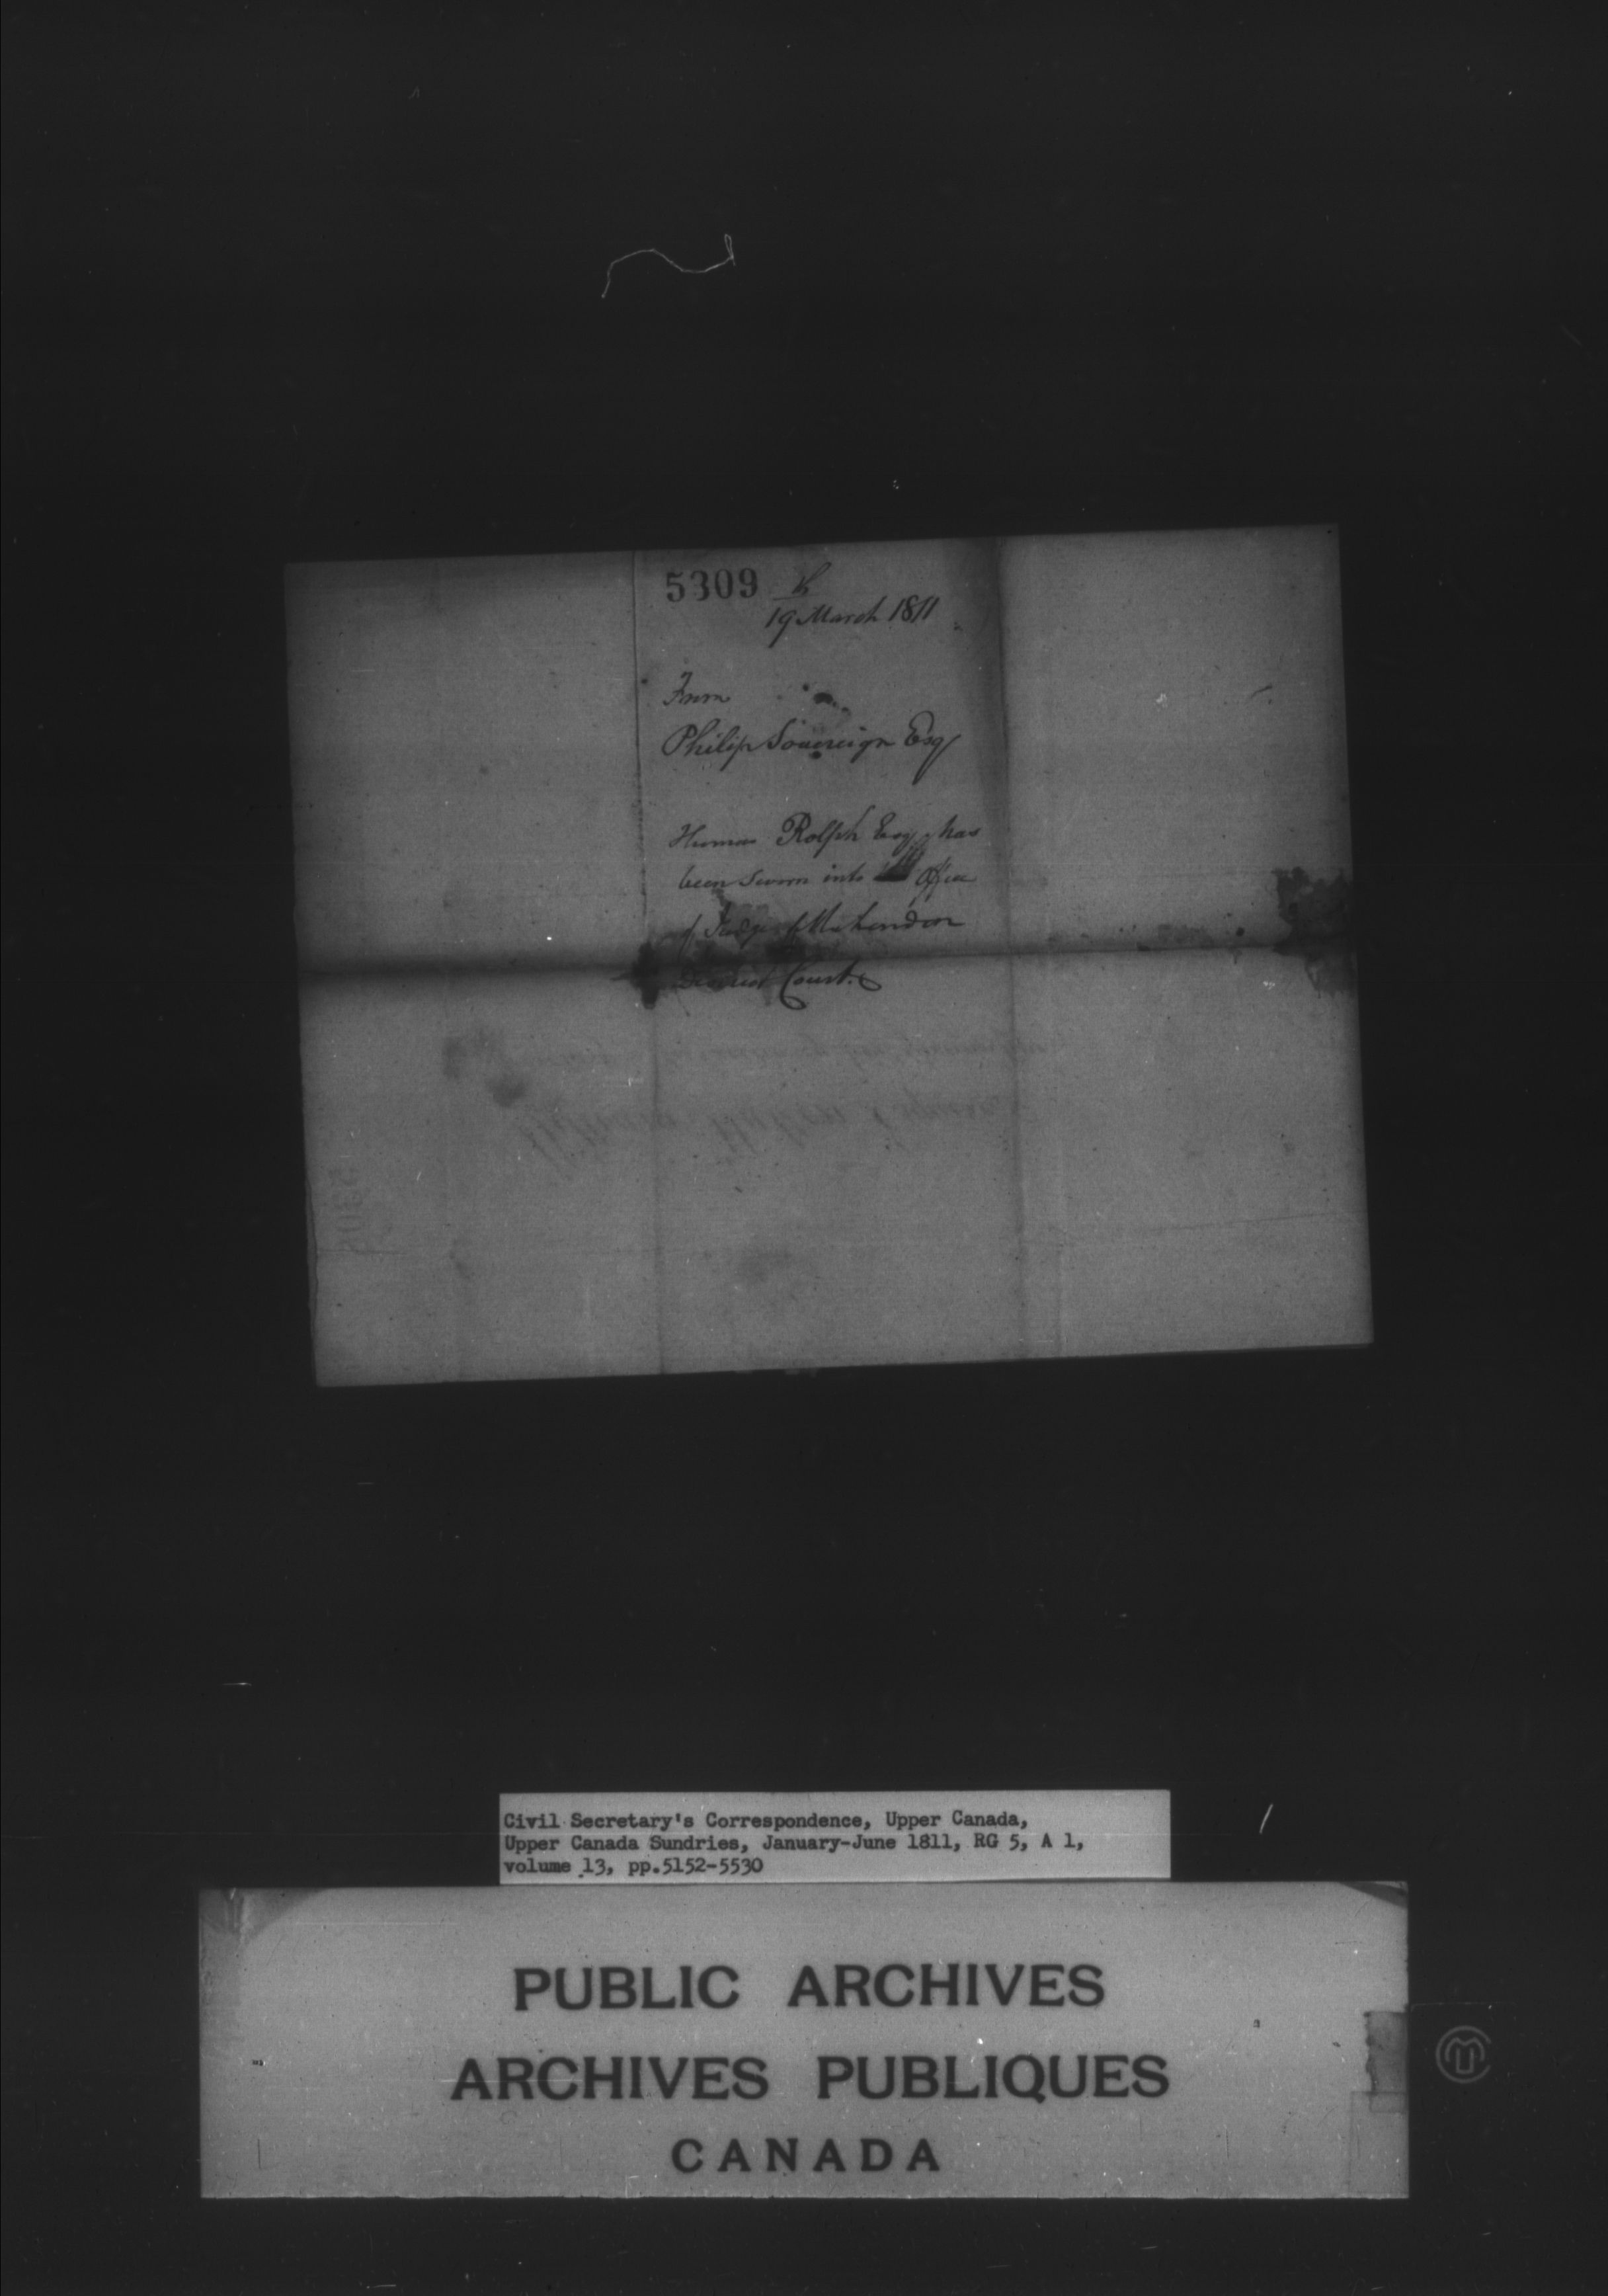 5309
19 March 1811
From
Philip Sovereign Esqr
Rolph Esqr has
been sworn into Office
of Judge of the London
District Court.
Civil Secretary's Correspondence, Upper Canada,
Upper Canada Sundries, January-June 1811, RG 5, A 1,
volume 13, pp.5152-5530
PUBLIC ARCHIVES
ARCHIVES PUBLIQUES
CANADA